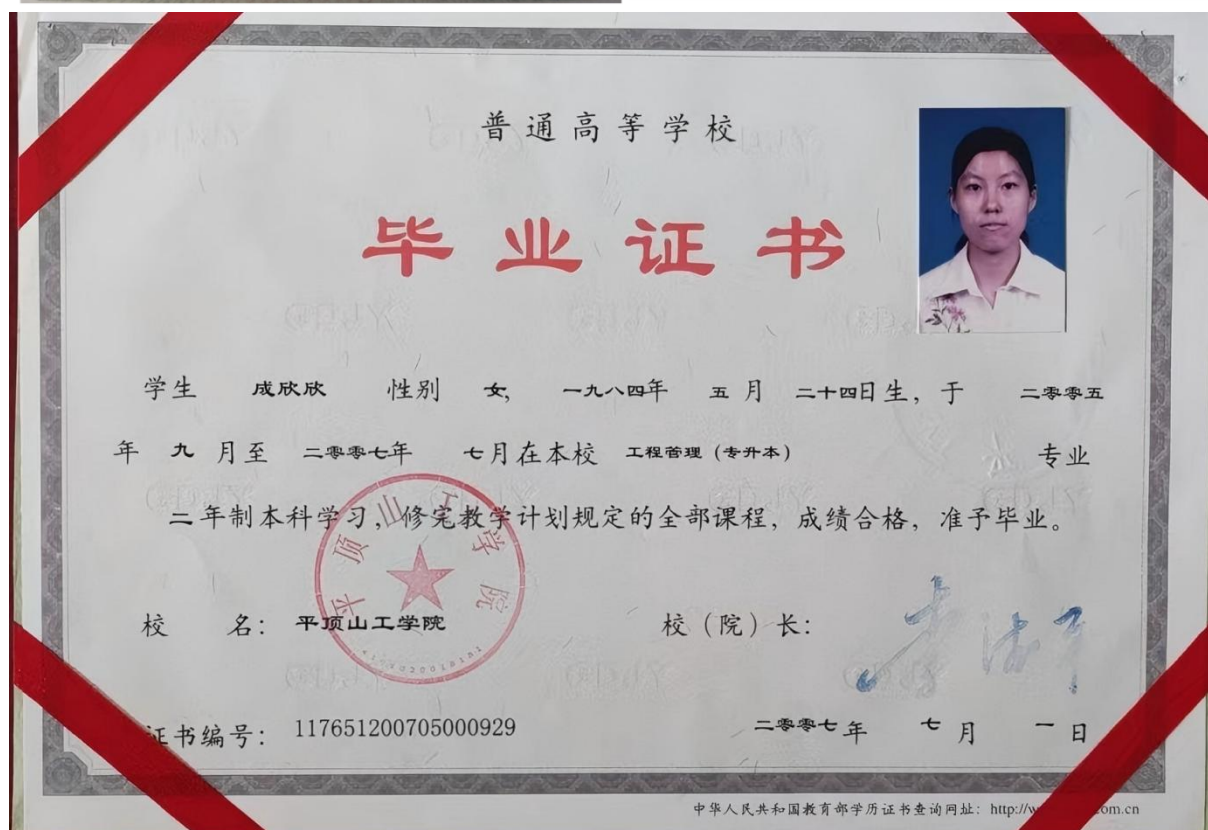 普通高等学校
毕业证书
学生 成欣欣 性别 女, 一九八四年 五月 二十四日生, 于 二零零五
年 九月至 二零零七年 七月在本校 工程管理（专升本） 专业
二年制本科学习, 修完教学计划规定的全部课程, 成绩合格, 准予毕业。
平顶山工学院
校 名: 平顶山工学院 校（院）长:
证书编号: 117651200705000929 二零零七年 七月 一日
中华人民共和国教育部学历证书查询网址: http://w om.cn